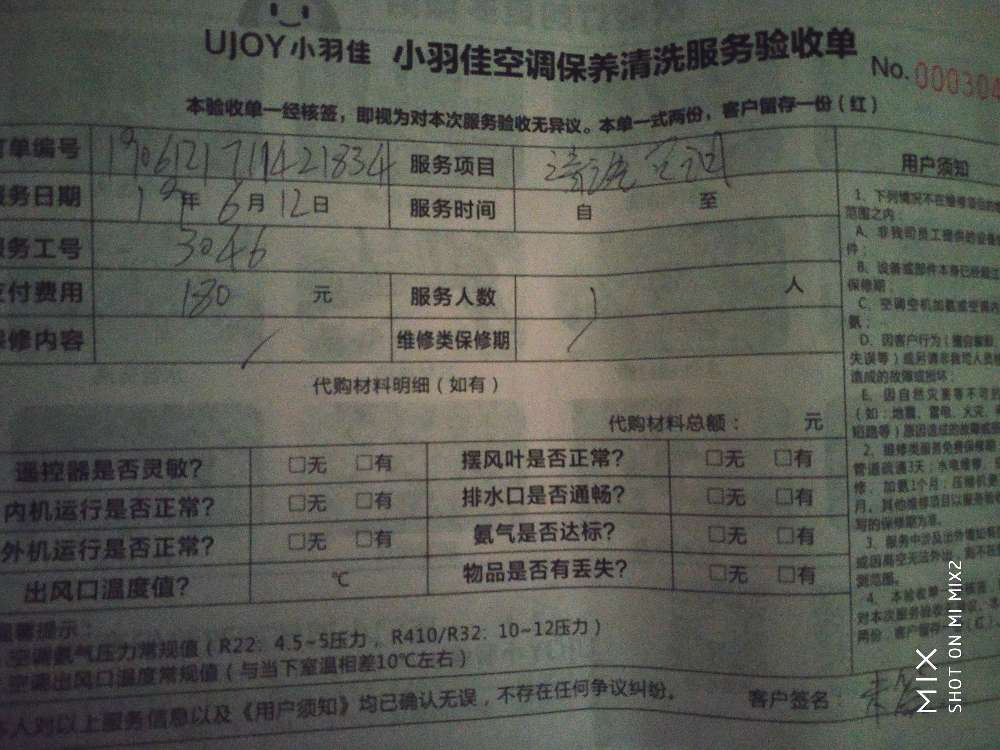 UJOY小羽佳 小羽佳空调保养清洗服务验收单
No. 000304
本验收单一经核签，即视为对本次服务验收无异议。本单一式两份，客户留存一份（红）
订单编号 1906121711421834 服务项目 清洗空调 用户须知
服务日期 19年6月12日 服务时间 自 至
服务工号 3046
支付费用 180 元 服务人数 1 人
维修内容 / 维修类保修期
代购材料明细（如有）
代购材料总额： 元
遥控器是否灵敏? □无 □有 摆风叶是否正常? □无 □有
内机运行是否正常? □无 □有 排水口是否通畅? □无 □有
外机运行是否正常? □无 □有 氨气是否达标? □无 □有
出风口温度值? ℃ 物品是否有丢失? □无 □有
温馨提示：
空调氨气压力常规值（R22：4.5~5压力，R410/R32：10~12压力）
空调出风口温度常规值（与当下室温相差10℃左右）
本人对以上服务信息以及《用户须知》均已确认无误，不存在任何争议纠纷。 客户签名：
1、下列情况不在维修项目的
范围之内：
A、非我司员工提供的设备
件；
B、设备或部件本身已经超过
保修期；
C、空调空机加氨或空管内
氨；
D、因客户行为（擅自
失误等）或另请非我司人员
造成的故障或损坏；
E、因自然灾害等不可
（如：地震、雷电、火灾、
短路等）原因造成的故障或
2、维修类服务免费保修期：
管道疏通3天；水电维修、
修、加氨1个月；压缩机更
月，其他维修项目以服务验收
写的保修期为准。
3、服务中涉及出外墙
或因高空无法外出，
测范围。
4、本验收单
对本次服务验收
两份，客户留存
MIX
SHOT ON MI MIX2